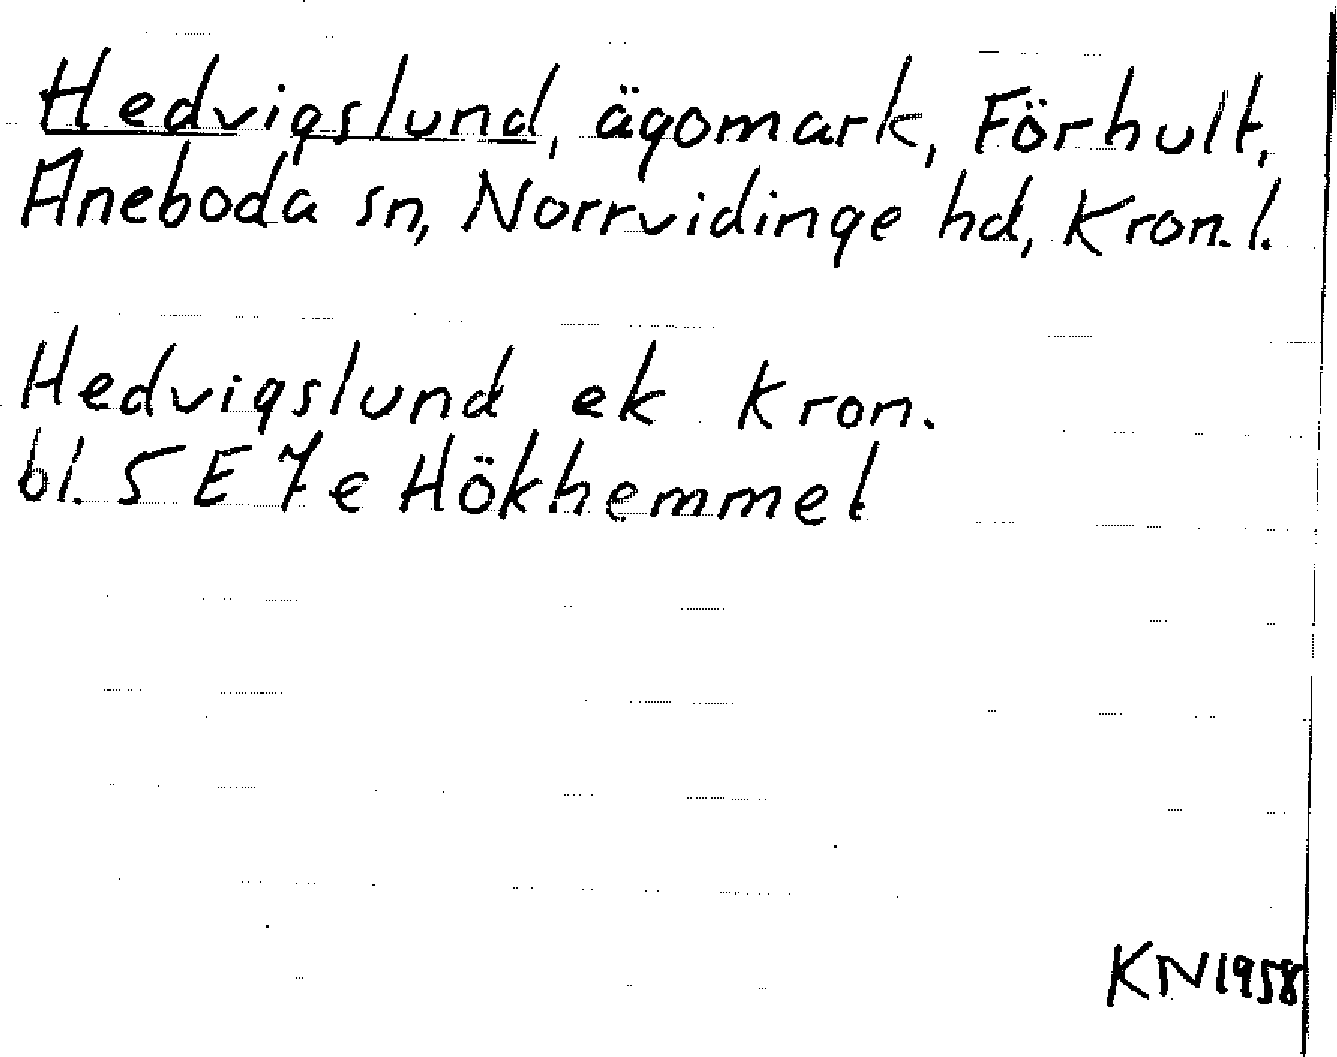 Hedvigslund, ägomark, Förhult,
Aneboda sn, Norrvidinge hd, Kron. l.
Hedvigslund ek Kron.
bl. 5 E 7 e Hökhemmet
KN 1958